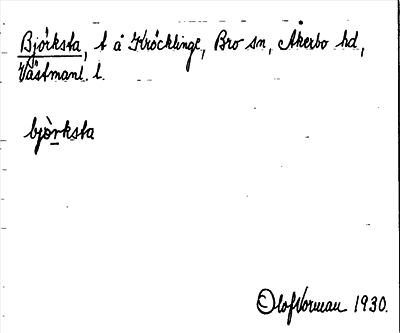 Björksta, t å Kröcklinge, Bro sn, Åkerbo hd,
Västmanl. l.
bjò̈rksta
Olof Vorman 1930.